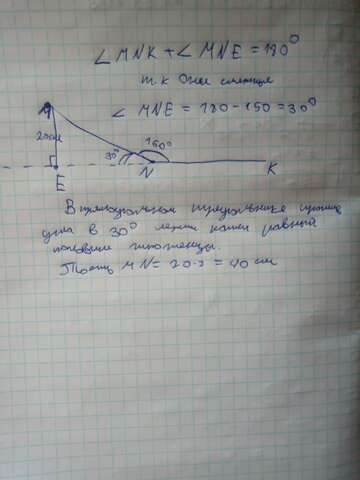 ∠MNK + ∠MNE = 180°
т.к они смежные
∠ MNE = 180 - 150 = 30°
M
20см
30°
150°
E
N
K
В прямоугольном треугольнике против
угла в 30° лежит катет равный
половине гипотенузы.
MN = 20·2 = 40 см